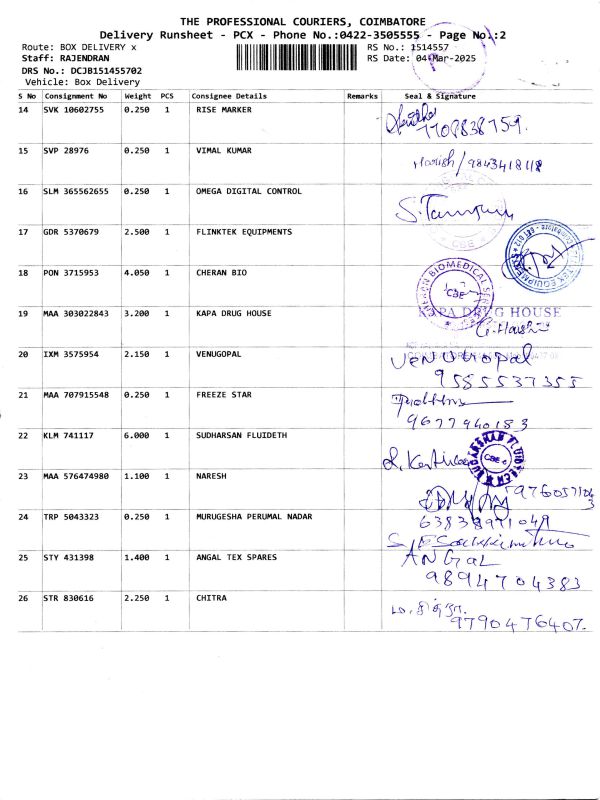 THE PROFESSIONAL COURIERS, COIMBATORE
Delivery Runsheet - PCX - Phone No.:0422-3505555 - Page No.:2
Route: BOX DELIVERY x RS No.: 1514557
Staff: RAJENDRAN RS Date: 04-Mar-2025
DRS No.: DCJB151455702
Vehicle: Box Delivery
S No Consignment No Weight PCS Consignee Details Remarks Seal & Signature
14 SVK 10602755 0.250 1 RISE MARKER
7708838759.
15 SVP 28976 0.250 1 VIMAL KUMAR Harish/9843418118
16 SLM 365562655 0.250 1 OMEGA DIGITAL CONTROL
CBE
17 GDR 5370679 2.500 1 FLINKTEK EQUIPMENTS
18 PON 3715953 4.050 1 CHERAN BIO
CHERAN BIOMEDICAL CBE
19 MAA 303022843 3.200 1 KAPA DRUG HOUSE KAPA DRUG HOUSE
20 IXM 3575954 2.150 1 VENUGOPAL Venugopal
9585537355
21 MAA 707915548 0.250 1 FREEZE STAR
9677940183
22 KLM 741117 6.000 1 SUDHARSAN FLUIDETH
23 MAA 576474980 1.100 1 NARESH
24 TRP 5043323 0.250 1 MURUGESHA PERUMAL NADAR
25 STY 431398 1.400 1 ANGAL TEX SPARES ANGAL
9894704383
26 STR 830616 2.250 1 CHITRA ம. சித்ரா.
9790476407.